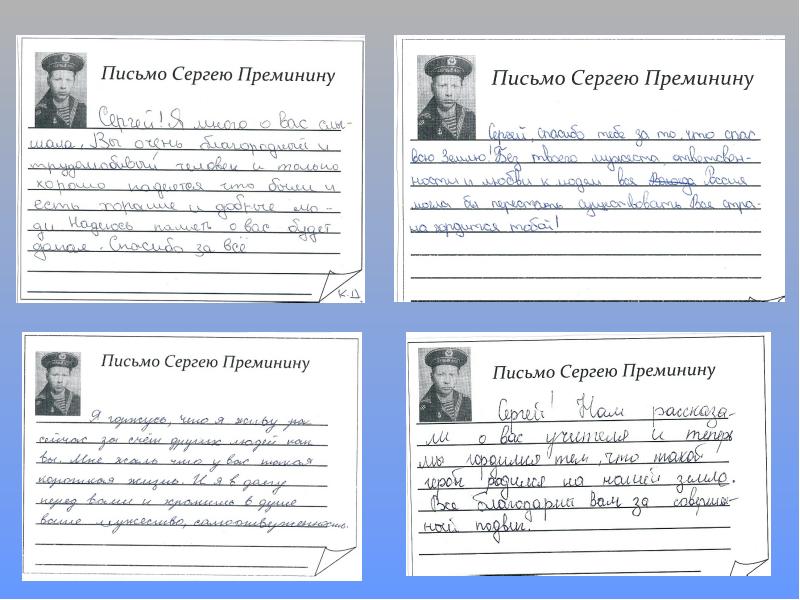 Письмо Сергею Преминину
Сергей! Я много о вас слы-
шала. Вы очень благородный и
трудолюбивый человек и только
хорошо надеются что были и
есть хорошие и добрые лю-
ди. Надеюсь память о вас будет
долгая. Спасибо за всё
К.Д
Письмо Сергею Преминину
Сергей, спасибо тебе за то, что спас
всю Землю! Без твоего мужества, ответствен-
ности и любви к людям вся Россия
могла бы перестать существовать. Вся стра-
на гордится тобой!
Письмо Сергею Преминину
Я горжусь, что я живу
сейчас за счёт других людей как
вы. Мне жаль что у вас такая
короткая жизнь. И я в долгу
перед вами и храню в душе
ваше мужество, самоотверженность.
Письмо Сергею Преминину
Сергей! Нам рассказа-
ли о вас учителя и теперь
мы гордимся тем, что такой
герой родился на нашей земле.
Все благодарят Вам за соверше-
ной подвиг.